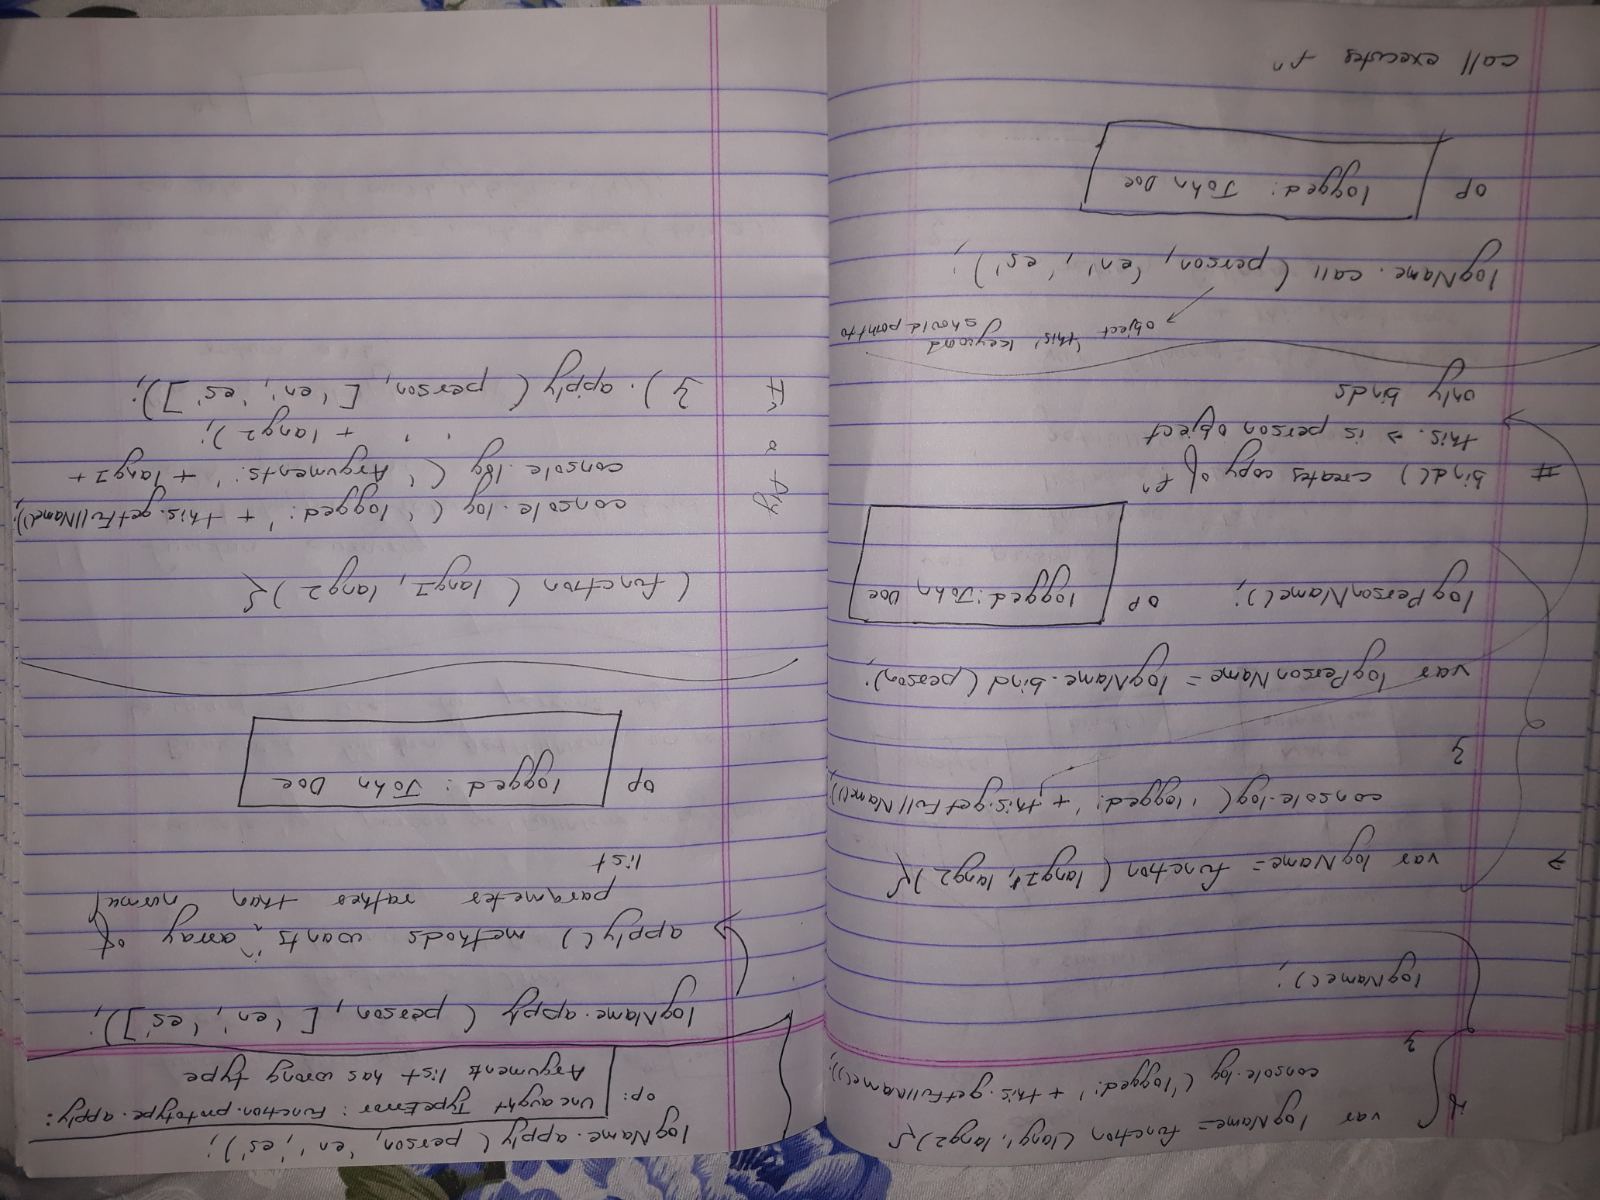 if var logName = function (lang1, lang2) {
console.log ('logged:' + this.getFullName());
}
logName();
→ var logName = function ( lang1, lang2 ) {
console.log( 'logged: ' + this.getFullName());
}
var logPersonName = logName.bind (person);
logPersonName(); op logged: John Doe
# bind() creates copy of fn
this. → is person object
only binds
object 'this' keyword
should point to
logName.call (person, 'en', 'es');
op logged: John Doe
call executes fn
logName.apply ( person, 'en', 'es');
op: Uncaught TypeError: Function.prototype.apply:
Arguments list has wrong type
logName.apply ( person, [ 'en', 'es' ]);
apply() methods wants array of
parameter rather than normal
list
op logged: John Doe
( function ( lang1, lang2 ) {
console.log ( 'logged: ' + this.getFullName());
console.log ( 'Arguments: ' + lang1 +
' ' + lang2 );
}). apply ( person, [ 'en', 'es' ]);